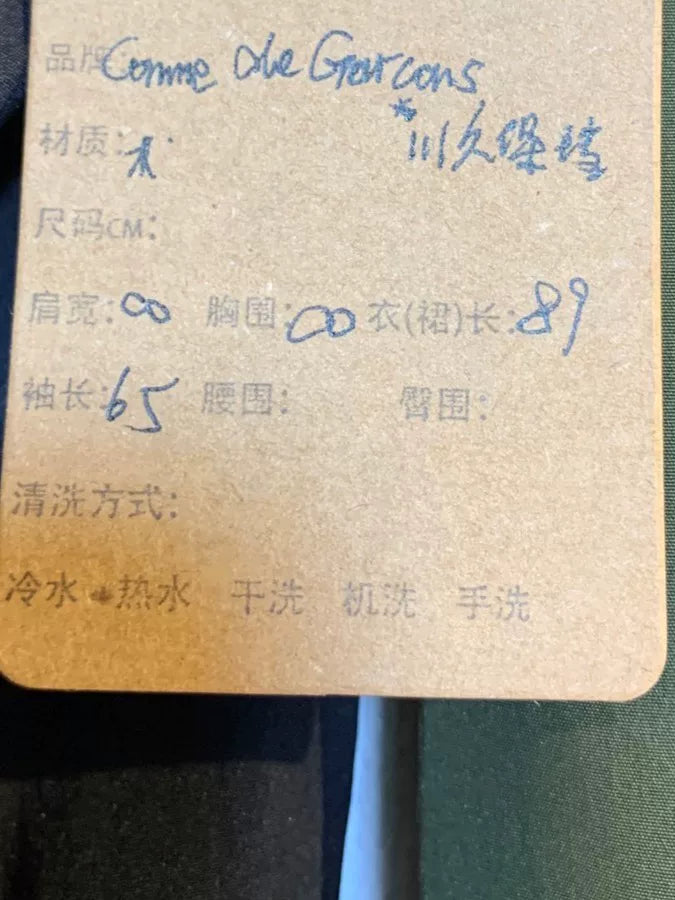 品牌: Comme de Garcons
*川久保玲
材质:
尺码CM:
肩宽:∞ 胸围:∞ 衣(裙)长:89
袖长:65 腰围: 臀围:
清洗方式:
冷水 热水 干洗 机洗 手洗